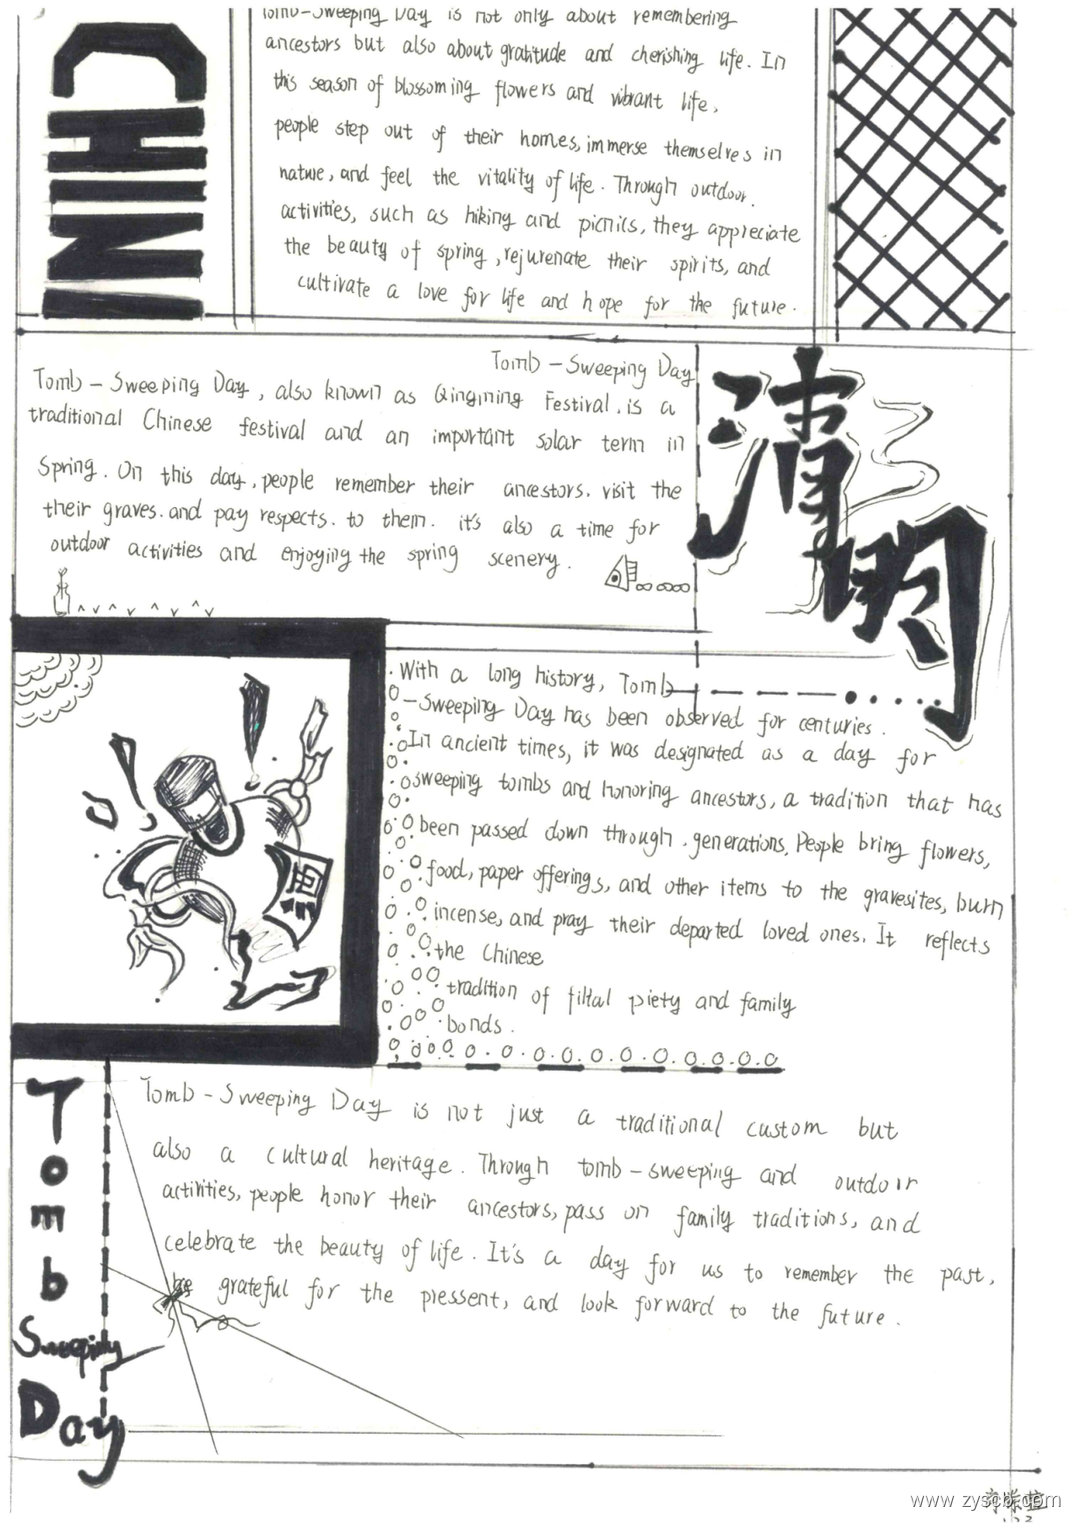 CHIN
Tomb-Sweeping Day is not only about remembering
ancestors but also about gratitude and cherishing life. In
this season of blossoming flowers and vibrant life,
people step out of their homes, immerse themselves in
nature, and feel the vitality of life. Through outdoor.
activities, such as hiking and picnics, they appreciate
the beauty of spring, rejurenate their spirits, and
cultivate a love for life and hope for the future.
Tomb-Sweeping Day
Tomb-Sweeping Day, also known as Qingming Festival, is a
traditional Chinese festival and an important solar term in
Spring. On this day, people remember their ancestors. visit the
their graves. and pay respects. to them. it's also a time for
outdoor activities and enjoying the spring scenery.
清明
With a long history, Tomb
-Sweeping Day has been observed for centuries.
In ancient times, it was designated as a day for
sweeping tombs and honoring ancestors, a tradition that has
been passed down through generations. People bring flowers,
food, paper offerings, and other items to the gravesites, burn
incense, and pray their departed loved ones. It reflects
the Chinese
tradition of filial piety and family
bonds.
酒
Tomb
Sweeping
Day
Tomb-Sweeping Day is not just a traditional custom but
also a cultural heritage. Through tomb-sweeping and outdoor
activities, people honor their ancestors, pass on family traditions, and
celebrate the beauty of life. It's a day for us to remember the past,
be grateful for the pressent, and look forward to the future.
www.zyscb.com